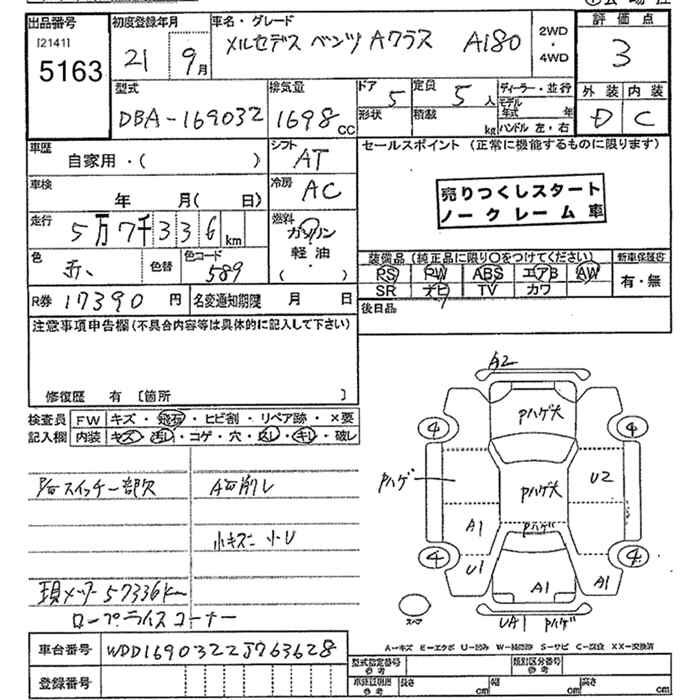 出品番号 初度登録年月 車名・グレード 2WD ・ 4WD 評価点
[2141] 5163 21 9月 メルセデス ベンツ Aクラス A180 3
型式 排気量 ドア 定員 ディーラー・並行 外装 内装
DBA-169032 1698 CC 5 5人 モデル年式 年 D C
形状 積載 kg ハンドル 左・右
車歴 自家用・( ) シフト AT セールスポイント (正常に機能するものに限ります)
車検 年 月( 日) 冷房 AC 売りつくしスタート
ノークレーム車
走行 5万7千336km 燃料 ガソリン
軽油
( )
色 赤 色替 色コード 589 装備品 (純正品に限り○をつけてください) 新車保証書
PS PW ABS エアB AW 有・無
SR ナビ TV カワ
R券 17390円 名変通知期限 月 日 後日品
注意事項申告欄(不具合内容等は具体的に記入して下さい)
修復歴 有 [箇所 ]
検査員 FW キズ・飛石・ヒビ割・リペア跡・×要
記入欄 内装 キズ・汚れ・コゲ・穴・・・破レ
A2
Pハゲ大
4 4
Pハゲ Pハゲ大 U2
A1 Pハゲ
4 4
U1 A1 A1
UA1 Pハゲ
スペア
スイッチ一部欠 削レ
小キズ 小U
現メーター57336km
ロープライスコーナー
A-キズ E-エクボ U-凹み S-サビ C-腐食 XX-交換済
車台番号 WDD1690322J763628 型式指定番号 参考 類別区分番号 参考
登録番号 参考 長さ cm 幅 cm 高さ cm